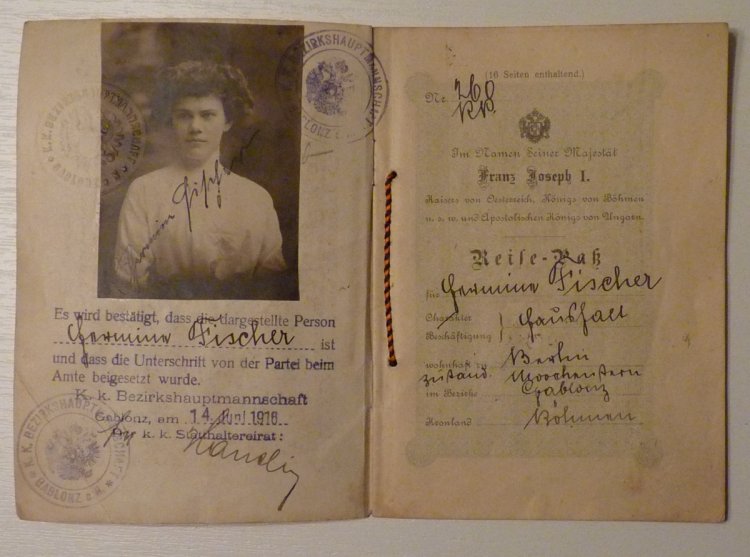 K.K. BEZIRKSHAUPTMANNSCHAFT
GABLONZ a. N.
Hermine Fischer
Es wird bestätigt, dass die dargestellte Person
Hermine Fischer ist
und dass die Unterschrift von der Partei beim
Amte beigesetzt wurde.
K. k. Bezirkshauptmannschaft
Gablonz, am 14. Juni 1916
Der k. k. Statthaltereirat:
K.K. BEZIRKSHAUPTMANNSCHAFT
GABLONZ a. N.
(16 Seiten enthaltend.)
Nr. 268
Im Namen Seiner Majestät
Franz Joseph I.
Kaisers von Oesterreich, Königs von Böhmen
u. s. w. und Apostolischen Königs von Ungarn.
Reise-Paß
für Hermine Fischer
Charakter
Beschäftigung } Haushalt
wohnhaft in Berlin
zuständ.
im Bezirke Gablonz
Kronland Böhmen